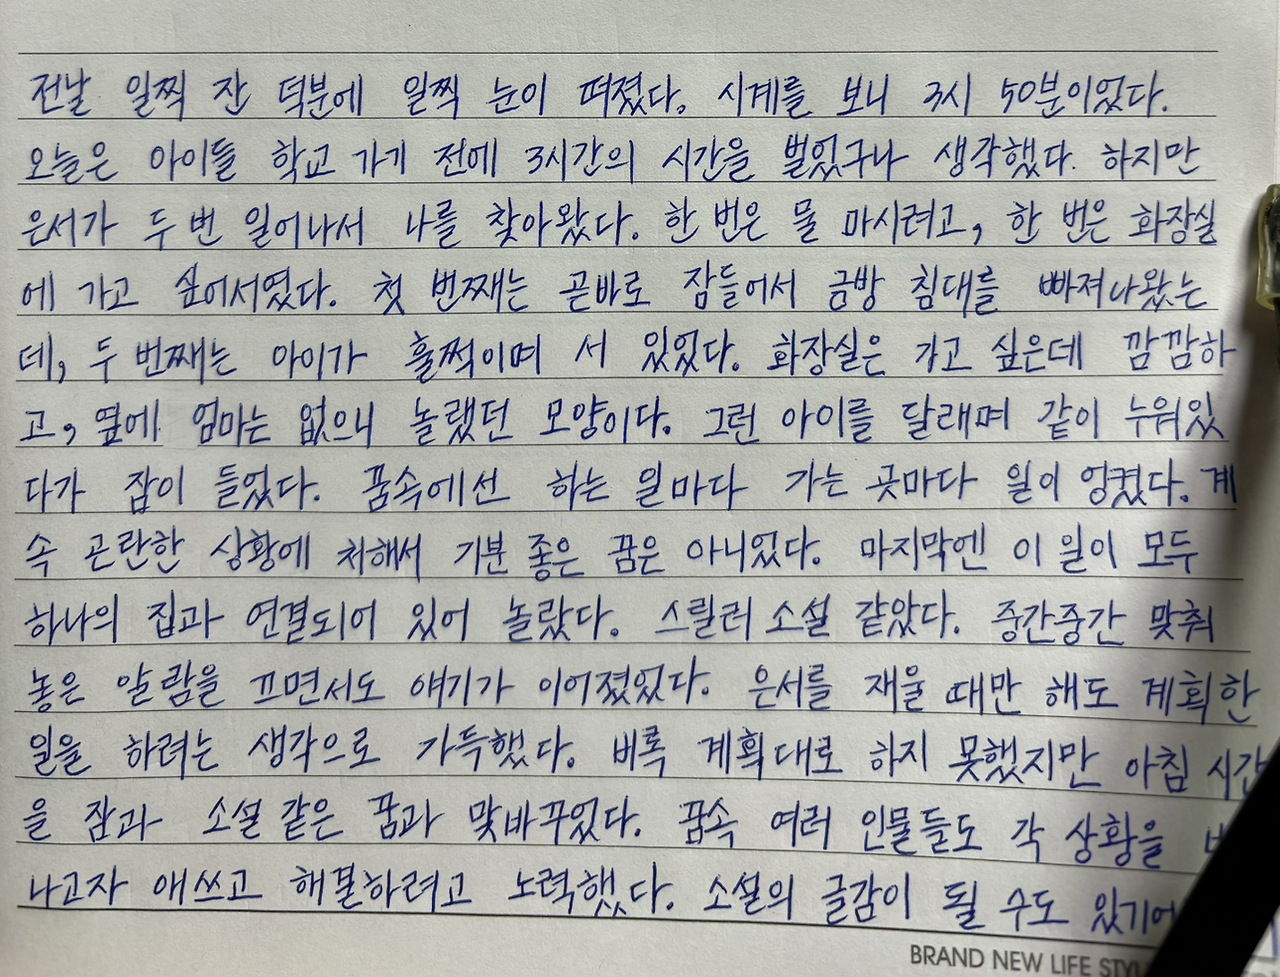 전날 일찍 잔 덕분에 일찍 눈이 떠졌다. 시계를 보니 3시 50분이었다.
오늘은 아이들 학교 가기 전에 3시간의 시간을 벌었구나 생각했다. 하지만
은서가 두 번 일어나서 나를 찾아왔다. 한 번은 물 마시려고, 한 번은 화장실
에 가고 싶어서였다. 첫 번째는 곧바로 잠들어서 금방 침대를 빠져나왔는
데, 두 번째는 아이가 훌쩍이며 서 있었다. 화장실은 가고 싶은데 깜깜하
고, 옆에 엄마는 없으니 놀랬던 모양이다. 그런 아이를 달래며 같이 누워있
다가 잠이 들었다. 꿈속에선 하는 일마다 가는 곳마다 일이 엉켰다. 계
속 곤란한 상황에 처해서 기분 좋은 꿈은 아니었다. 마지막엔 이 일이 모두
하나의 집과 연결되어 있어 놀랐다. 스릴러 소설 같았다. 중간중간 맞춰
놓은 알람을 끄면서도 얘기가 이어졌었다. 은서를 재울 때만 해도 계획한
일을 하려는 생각으로 가득했다. 비록 계획대로 하지 못했지만 아침 시간
을 잠과 소설 같은 꿈과 맞바꾸었다. 꿈속 여러 인물들도 각 상황을
나고자 애쓰고 해결하려고 노력했다. 소설의 글감이 될 수도 있기에
BRAND NEW LIFE